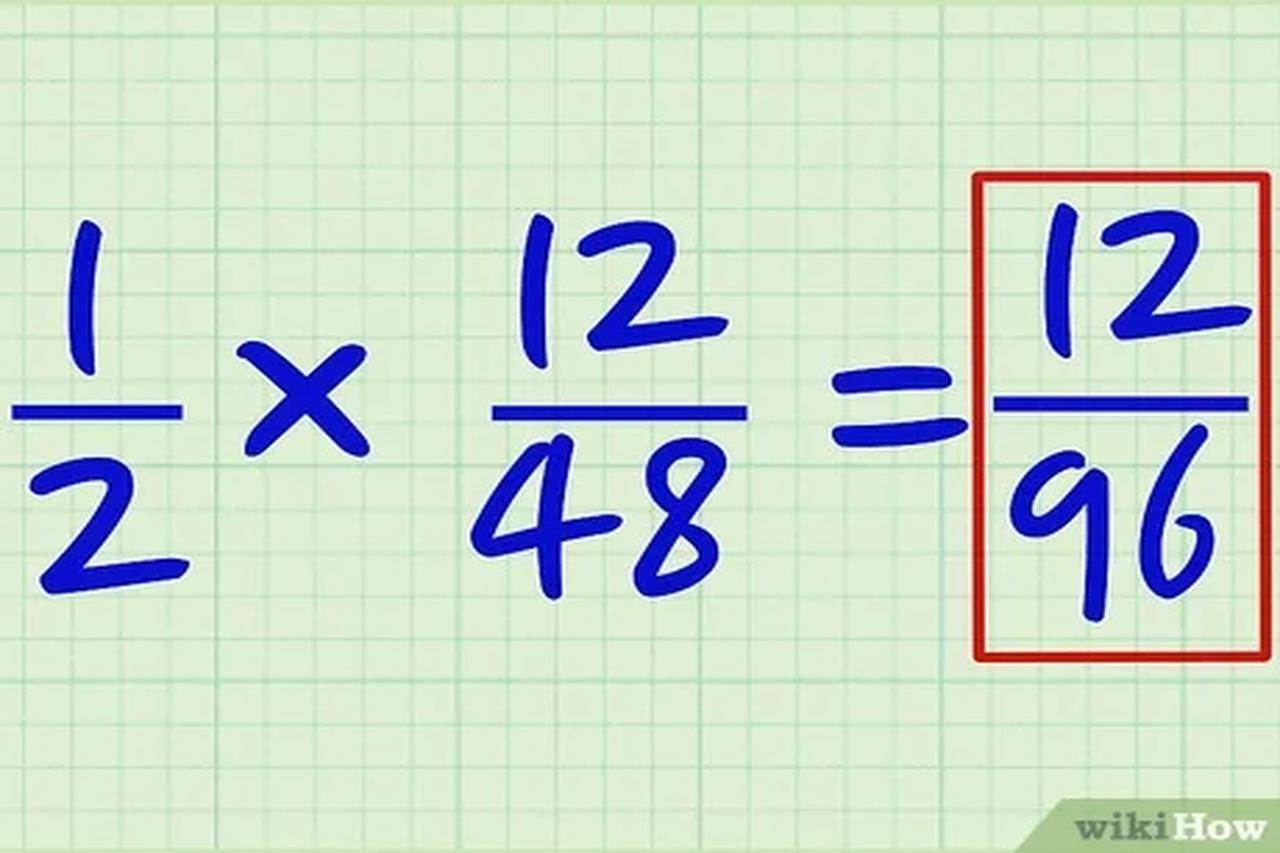 1/2 × 12/48 = 12/96
wikiHow